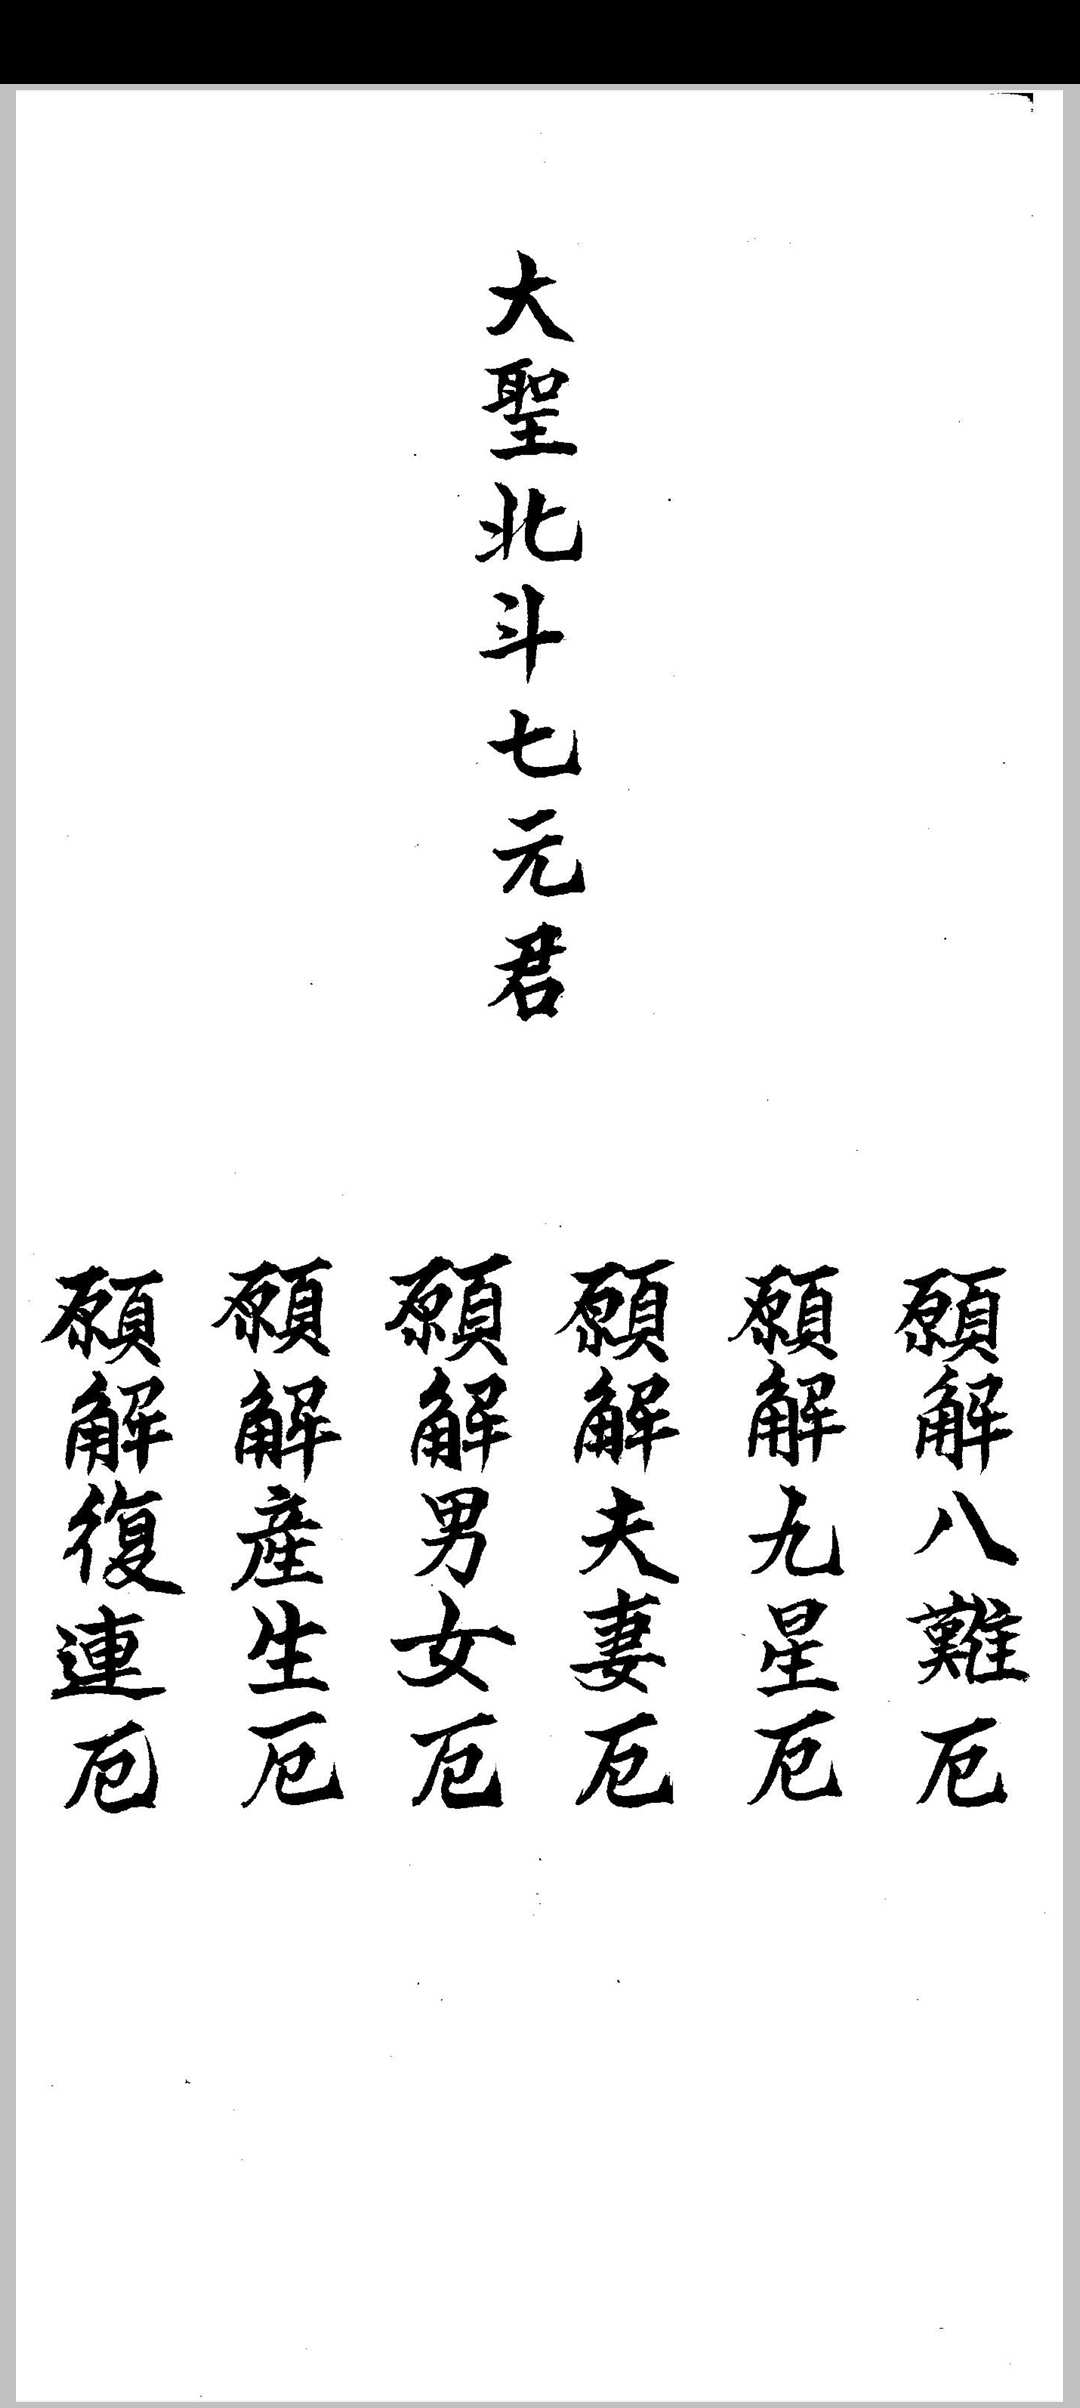 大聖北斗七元君
願解八難厄
願解九星厄
願解夫妻厄
願解男女厄
願解産生厄
願解復連厄